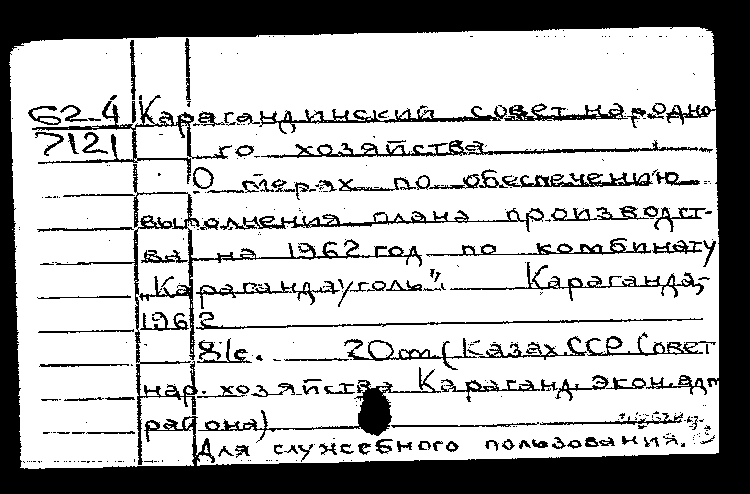 62-4 Карагандинский совет народно-
7121 го хозяйства
О мерах по обеспечению
выполнения плана производст-
ва на 1962 год по комбинату
„Карагандауголь". Караганда,
1962
8/с. 20см (Казах.ССР. Совет
нар. хозяйства Караганд. экон. адм
района).
Для служебного пользования.